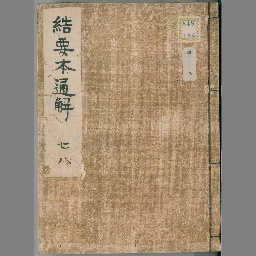 結要本通解
七八